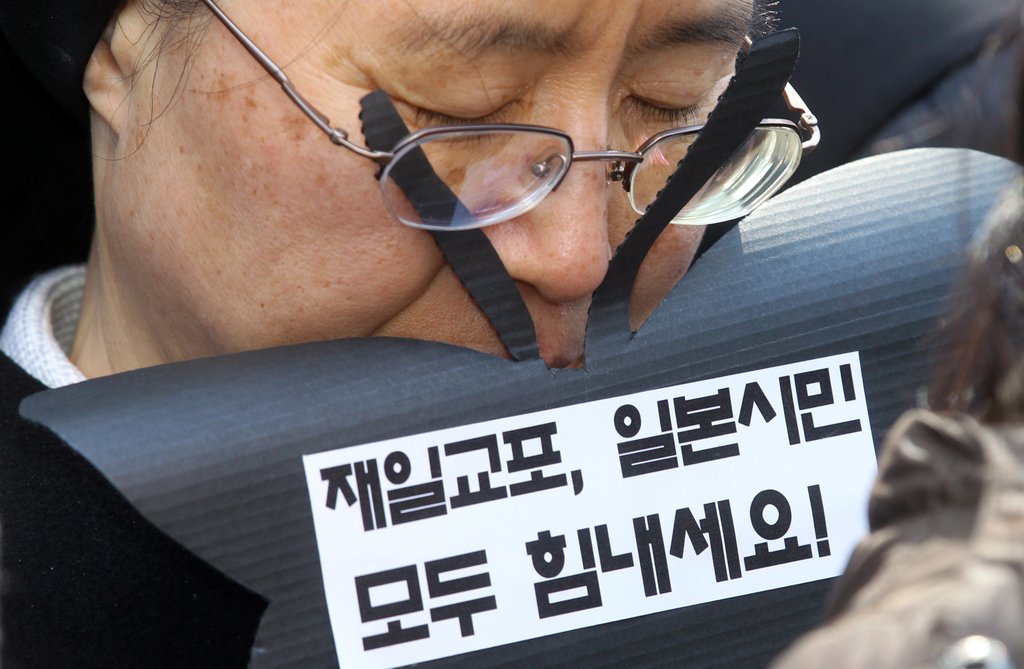 재일교포, 일본시민
모두 힘내세요!